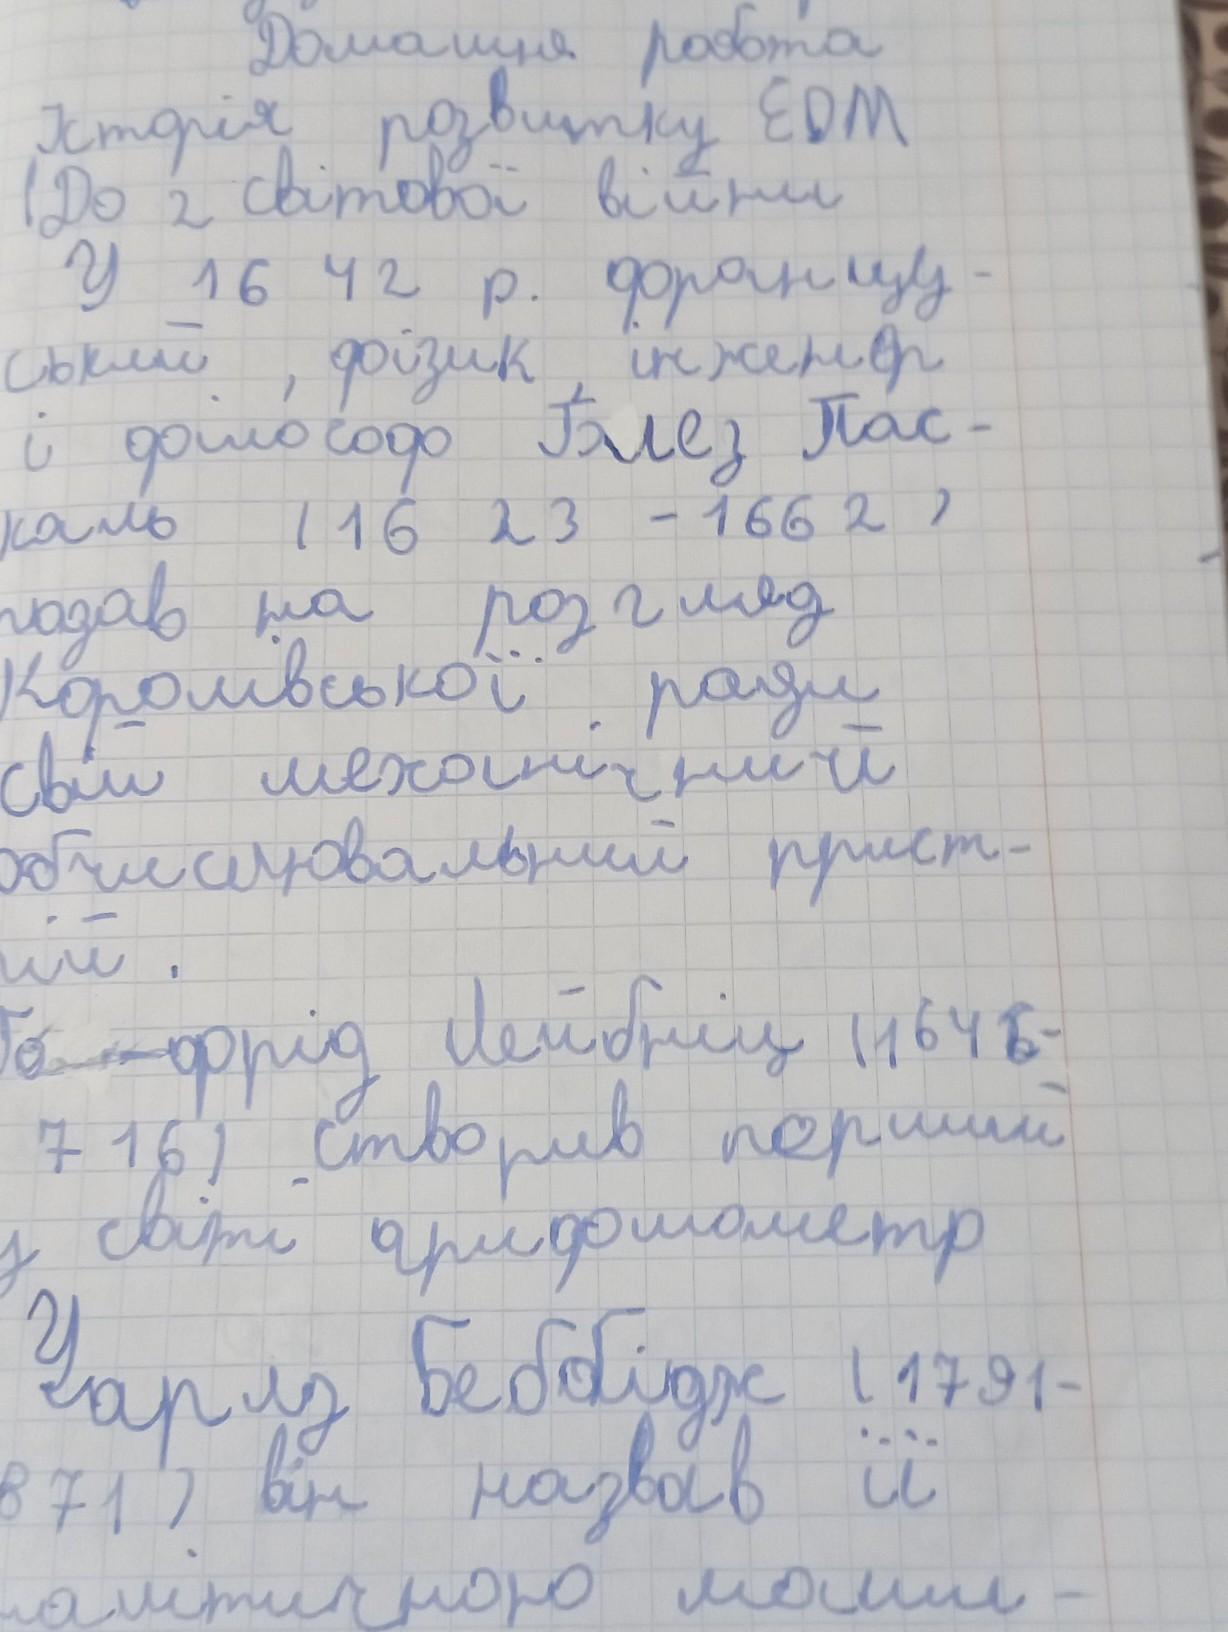 Домашня робота
Історія розвитку ЕОМ
(До 2 світової війни
У 1642 р. францу-
ський, фізик, інженер
і філософ Блез Пас-
каль (1623-1662)
подав на розгляд
Королівської ради
свій механічний
обчислювальний прист-
ій.
фрід Лейбніц (1646-
716) створив перший
у світі арифмометр
Чарлз Беббідж (1791-
871) він назвав її
налітичною маши-